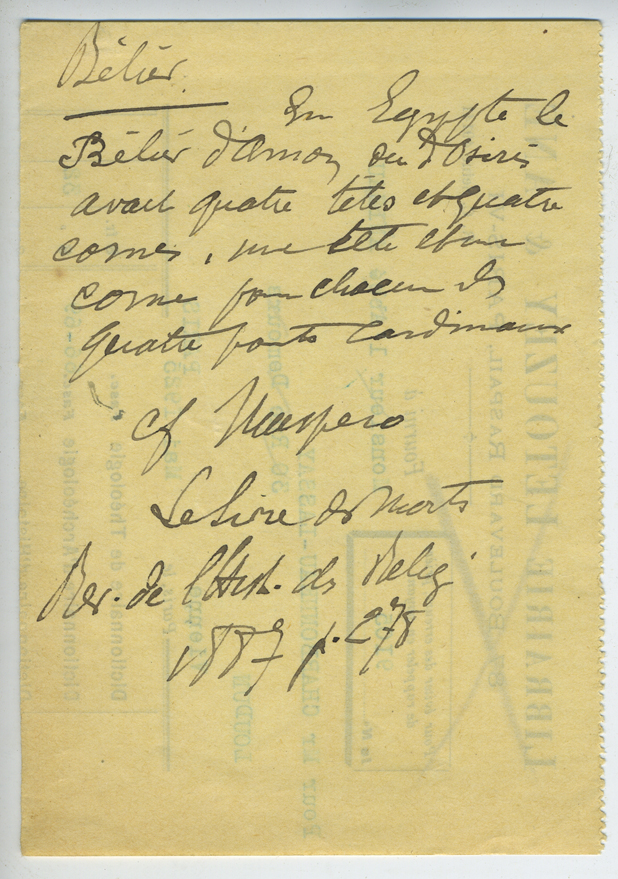 Bélier
En Egypte le
Bélier d'Amon ou d'Osiris
avait quatre têtes et quatre
cornes, une tête et une
corne pour chacun des
quatre points cardinaux
cf Maspero
Le Livre des Morts
Rev. de l'Hist. des Relig
1887 p. 278
LIBRAIRIE LETOUZEY & ANÉ
BOULEVARD RASPAIL
Dictionnaire de Théologie